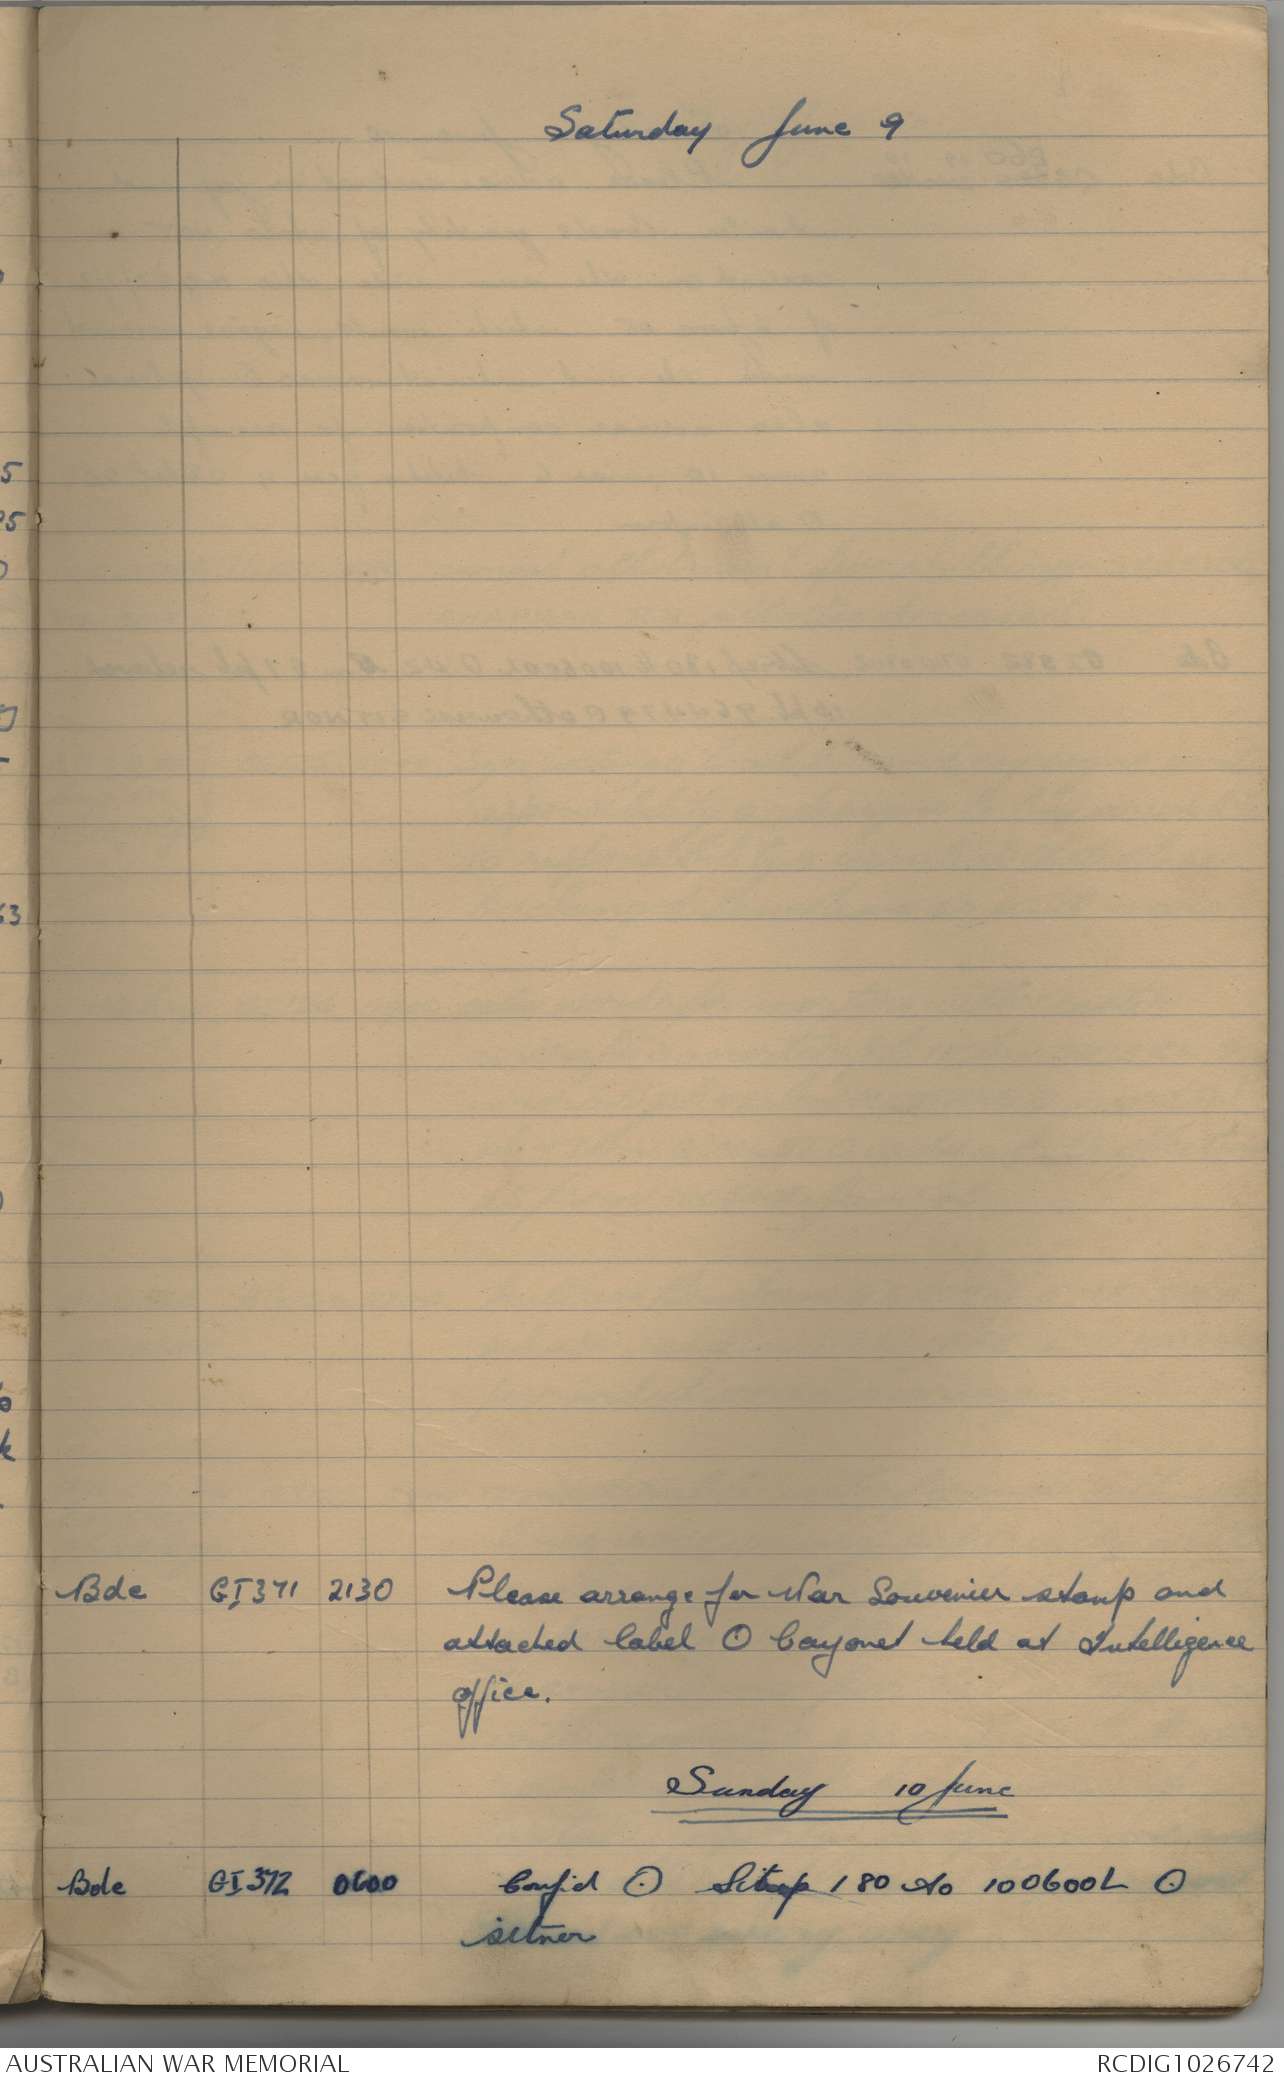 Saturday June 9
Bde GI371 2130 Please arrange for War Souvenier stamp and
attached label ⊙ bayonet held at Intelligence
office.
Sunday 10 June
Bde GI372 0600 Confid ⊙ Sitrep 180 to 100600L ⊙
sitnor
AUSTRALIAN WAR MEMORIAL
RCDIG1026742